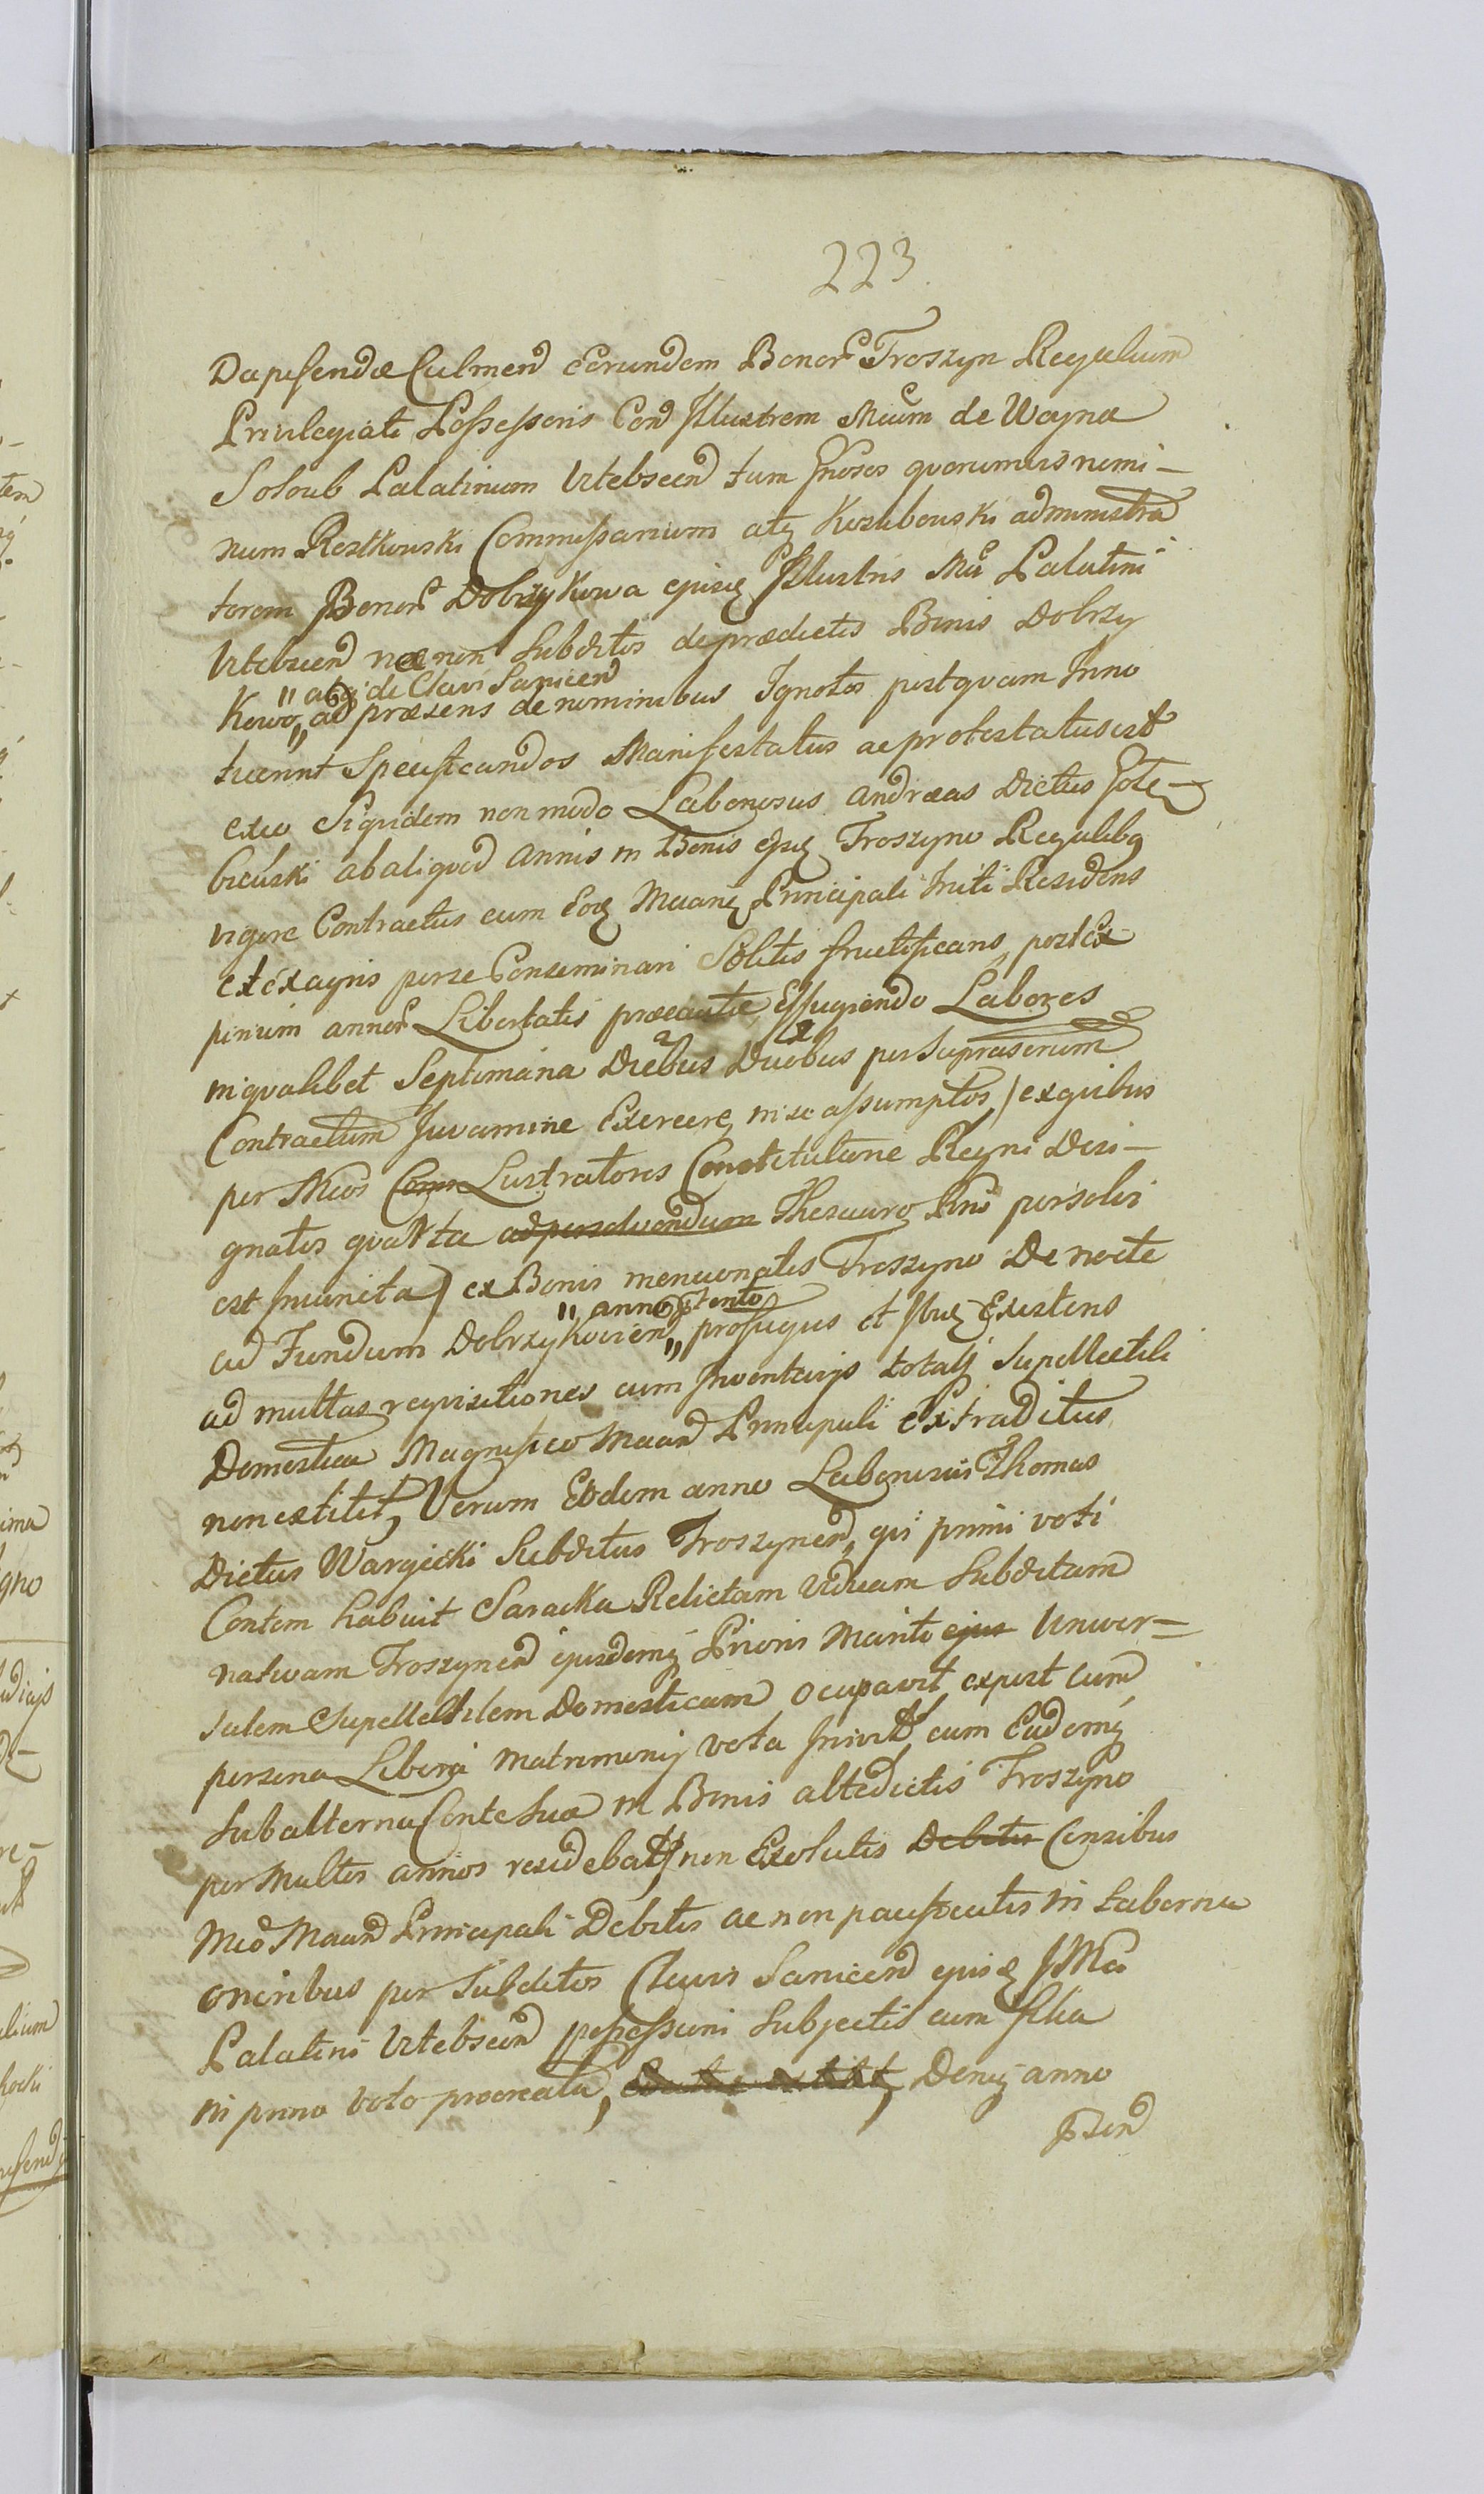 223
Dapiferidæ Culmen̄ eorundem Bonor̄ Troszyn Regalium
Privilegiati Possessoris Con̄ Illustrem Mcum de Woyna
Soloub Palatinum Vitebscen̄ tum Gnosos quorumvis nomi-
num Rostkowski Commissarium atq Kozłibowski administra
torem Bonor̄ Dobrzykowa ejusq Illustris Mci Palatini
Vitebscen̄ nec non Subditos de prædictis Bonis Dobrzy
" atq de Clavi Sanicen̄
kowo " ad præsens de nominibus Ignotos postquam Inno
tuerint Specificandos Manifestatus ac protestatus est
exeo Siquidem non modo Laboriosus Andreas Dictus
ab aliquod Annis in Bonis Troszyno Regalibq
vigore Contractus cum Eoq Maanq Principali Initi Residens
et ex agris per se Conseminari Solitis fructificans, post Ex
pirium annor̄ Libertatis Effugiendo Labores
in qualibet Septimana Diebus Duobus per Suprascrium
Contractum Juvamine Exercere, in se assumptos, ) ex quibus
per Mcos Com Lustratores Constitutione Regni Desi-
gnatos quarta ad persolvendum Thesauro persolvi
est Invenita ) ex Bonis mencionatis Troszyno De nocte
" anno
ad Fundum Dobrzykovien̄ " profugus et Ibiq Existens
ad multas reqvisitiones cum Inventarijs totalj Supellectili
Domestica Magnifico Maan̄ Principali Extraditus
non extitit, Verum Eodem anno Laboriosus Thomas
Dictus Wargicki Subditus Troszynen̄, qui primi voti
Contem habuit Saracka Relictam Viduam Subditam
nativam Troszynen̄ ejusdemq Prioris Mariti ejus Univer=
salem Supellectilem Domesticam ocupavit expost cum
persona Libera Matrimonij vota Inivit, cum Eademq
Subalterna Conte Sua in Bonis altedictis Troszyno
per Multos annos residebat, non Exolutis Debitis Censibus
Mco Maan̄ Principali Debitis ac non in taberna
oneribus per Subditos Clavis Sanicen̄ ejusq
Palatini Vitebscen̄ possessioni Subjectis cum filia
in primo Voto procreata, Denq anno